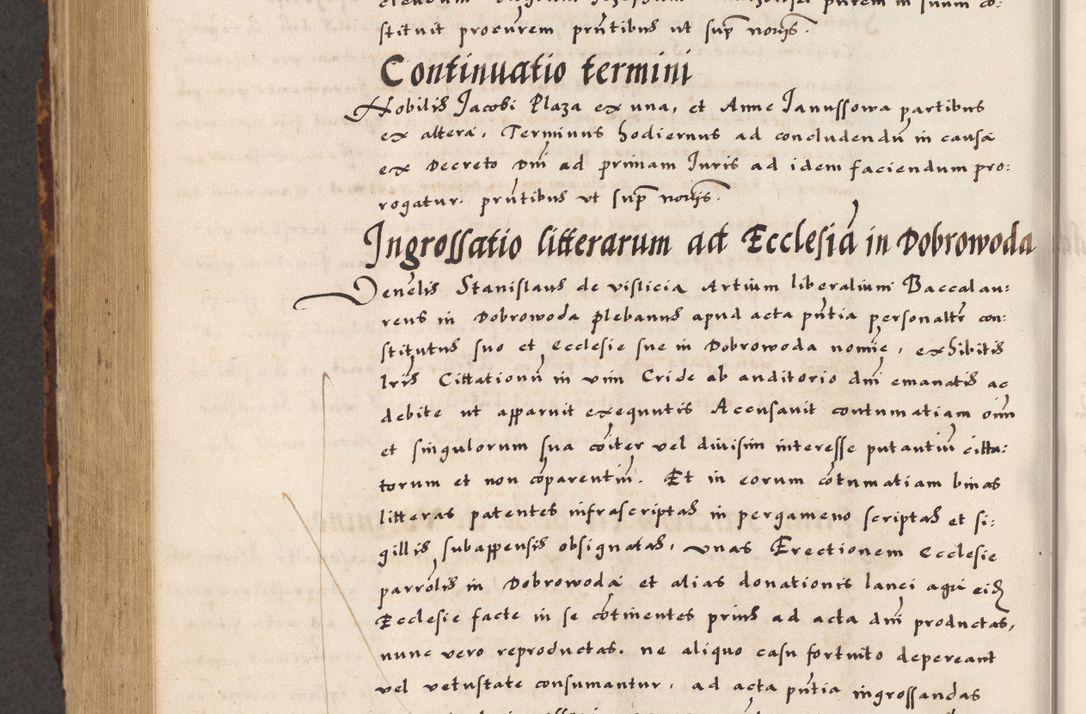 stituit procurem prñtibus ut sup̃ nomĩs.
Continuatio termini
Nobilis Jacobi Plaza ex una, et Anne Janussowa partibus
ex altera. Terminus hodiernus ad concludendũ in causa
ex Decreto Dñi ad primam Juris ad idem faciendum pro:
rogatur. prñtibus ut sup̃ nomĩs.
Ingrossatio litterarum ad Ecclesiã in Dobrowoda
Venẽlis Stanislaus de Visliciã Artium liberalium Baccalau:
reus in Dobrowoda plebanus apud acta pñtia personaltr̃ con:
stitutus suo et Ecclesie sue in Dobrowoda nomĩe, exhibitis
lr̃is Cittationũ in vim Cride ab auditorio dñi emanatis ac
debite ut apparuit exequutis Accusauit contumatiam oĩm
et singulorum sua cõiter vel diuisim interesse putantiũ citta:
torum et non cõparentiũ. Et in eorum cõtumatiam binas
litteras patentes infrascriptas in pergameno scriptas et si:
gillis subappensis obsignatas, unas Erectionem Ecclesie
parrõlis in Dobrowoda et alias donationis lanei agri eid̃
Ecclesie facte in se cõtinentes prius ad acta dñi productas,
nunc vero reproductas. ne aliquo casu fortuito depereant
vel vetustate consumantur, ad acta pñtia ingrossandas